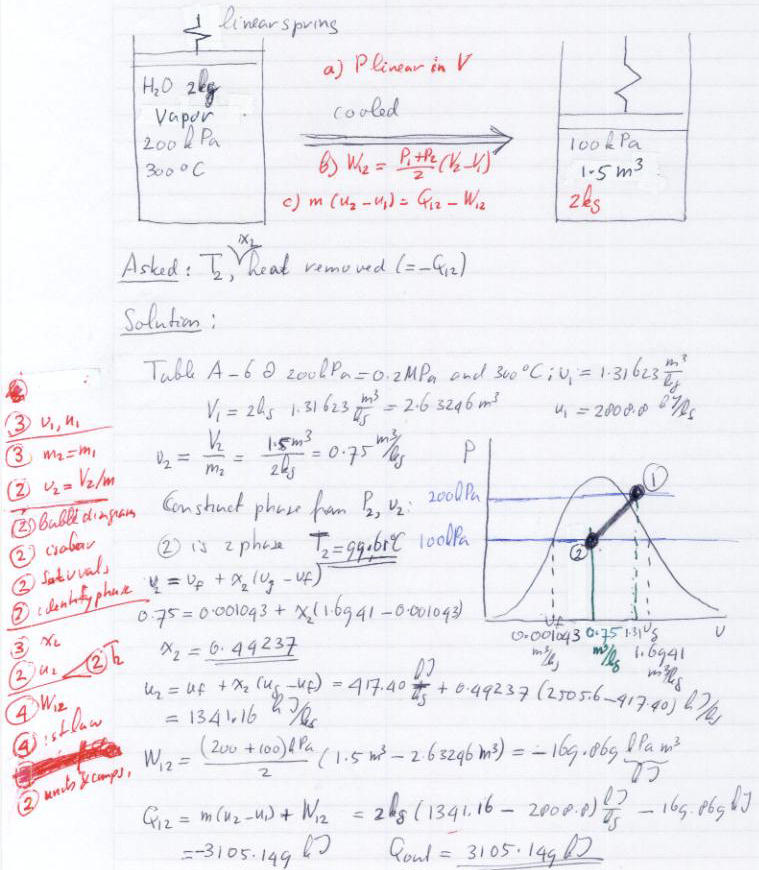 linear spring
H₂O 2kg
Vapor
200 kPa
300°C
a) P linear in V
cooled
b) W₁₂ = (P₁+P₂)/2 (V₂-V₁)
c) m(u₂-u₁) = Q₁₂ - W₁₂
100kPa
1.5 m³
2kg
x₂
Asked: T₂, heat removed (= -Q₁₂)
Solution:
Table A-6 @ 200kPa = 0.2MPa and 300°C; v₁ = 1.31623 m³/kg
V₁ = 2kg 1.31623 m³/kg = 2.63246 m³ u₁ = 2808.8 kJ/kg
v₂ = V₂/m₂ = 1.5m³/2kg = 0.75 m³/kg
Construct phase from P₂, v₂:
② is 2 phase T₂ = 99.61°C
v₂ = vf + x₂(vg - vf)
0.75 = 0.001043 + x₂(1.6941 - 0.001043)
x₂ = 0.44237
P
200kPa
100kPa
①
②
vf vg v
0.001043 m³/kg 0.75 m³/kg 1.31 1.6941 m³/kg
u₂ = uf + x₂(ug - uf) = 417.40 kJ/kg + 0.44237 (2505.6 - 417.40) kJ/kg
= 1341.16 kJ/kg
W₁₂ = (200 + 100)kPa/2 (1.5 m³ - 2.63246 m³) = -169.869 kPa m³
kJ
Q₁₂ = m(u₂-u₁) + W₁₂ = 2kg (1341.16 - 2808.8) kJ/kg - 169.869 kJ
= -3105.149 kJ Qout = 3105.149 kJ
③ v₁, u₁
③ m₂ = m₁
② v₂ = V₂/m
② Bubble diagram
② isobar
② sat vals
② identify phase
③ x₂
② u₂ ② T₂
④ W₁₂
④ 1st law
② units & comps.